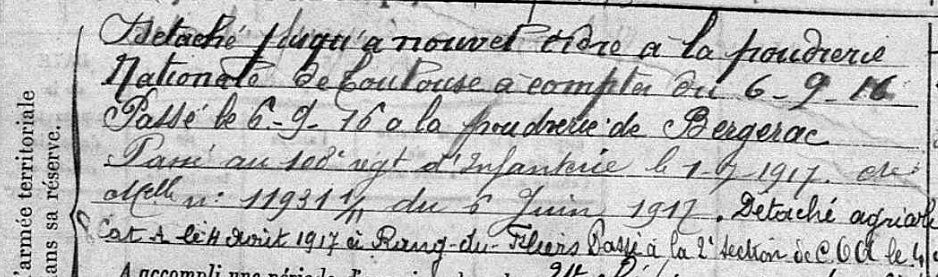 Détaché jusqu'à nouvel ordre à la poudrerie
Nationale de Toulouse à compter du 6-9-16
Passé le 6-9-16 a la poudrerie de Bergerac
Passé au 108e régt d'Infanterie le 1-7-1917. 
Melle n: 11931 1/11 du 6 Juin 1917. Detaché agricole
Cat A le 4 Août 1917 à Rang-du-Fliers Passé à la 2e section de COA le
A accompli une période
l'armée territoriale
ans sa réserve.